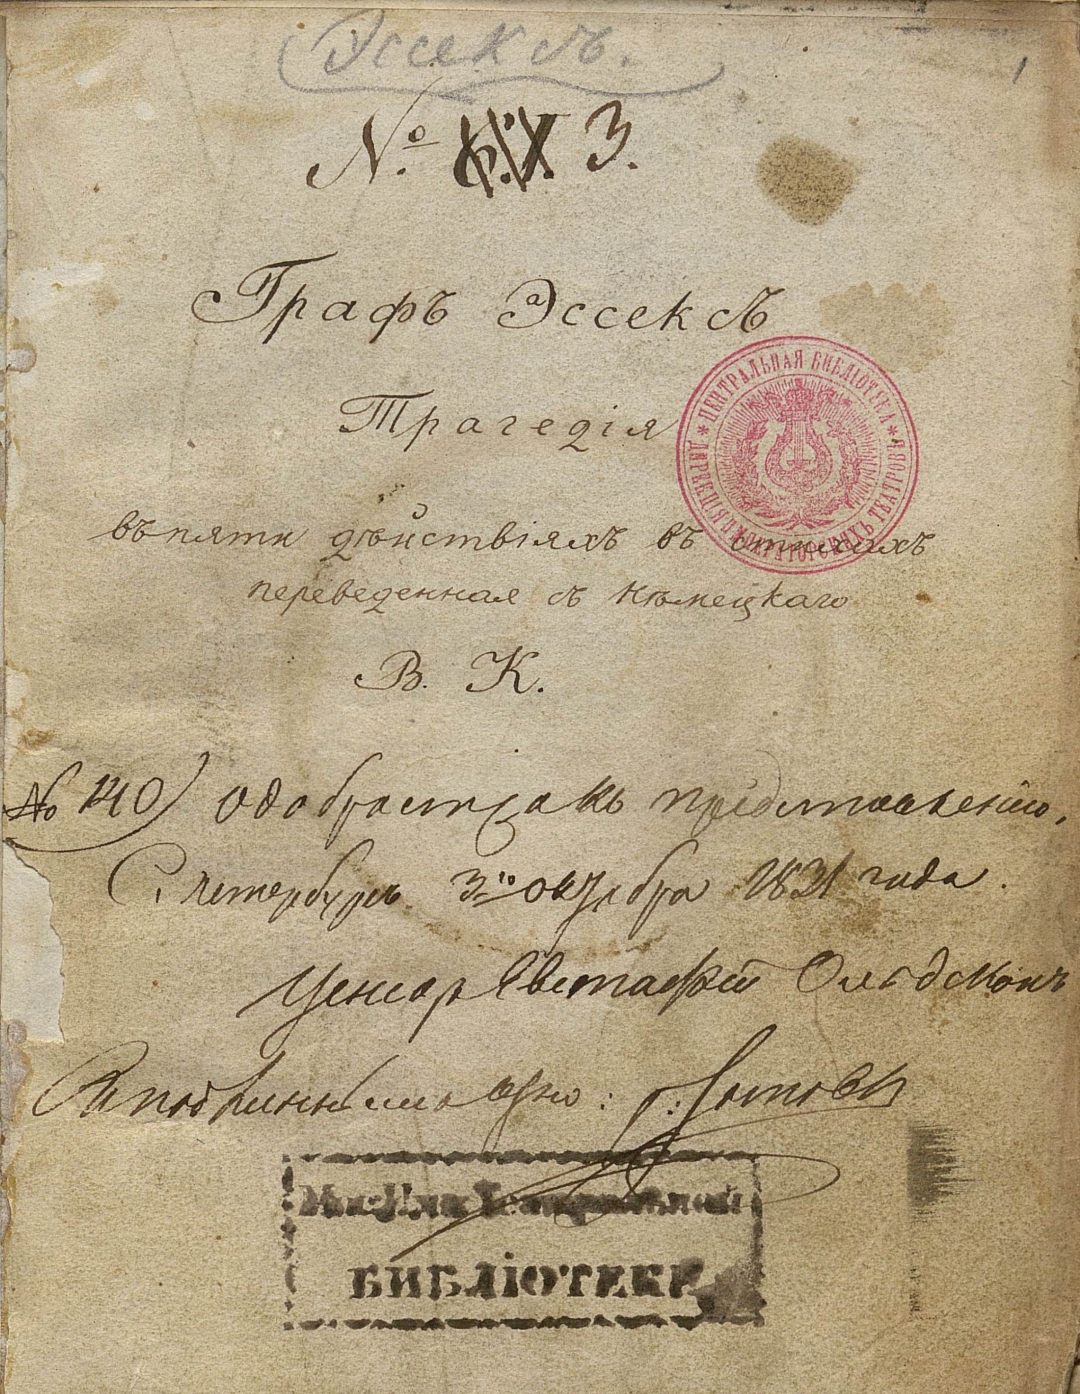 Эссексъ.
1
№ 3.
Графъ Эссексъ
Трагедія
въ пяти дѣйствіяхъ въ стихахъ
переведенная съ нѣмецкаго
В. К.
ЦЕНТРАЛЬНАЯ БИБЛІОТЕКА * ДИРЕКЦІЯ ИМПЕРАТОРСКИХЪ ТЕАТРОВЪ *
№ 140) одобряется къ представленію.
С. петербургъ. 3го октября 1831 года.
Ценсоръ Евстафій Ольдекопъ
подлиннымъ вѣрно:
БИБЛІОТЕКИ